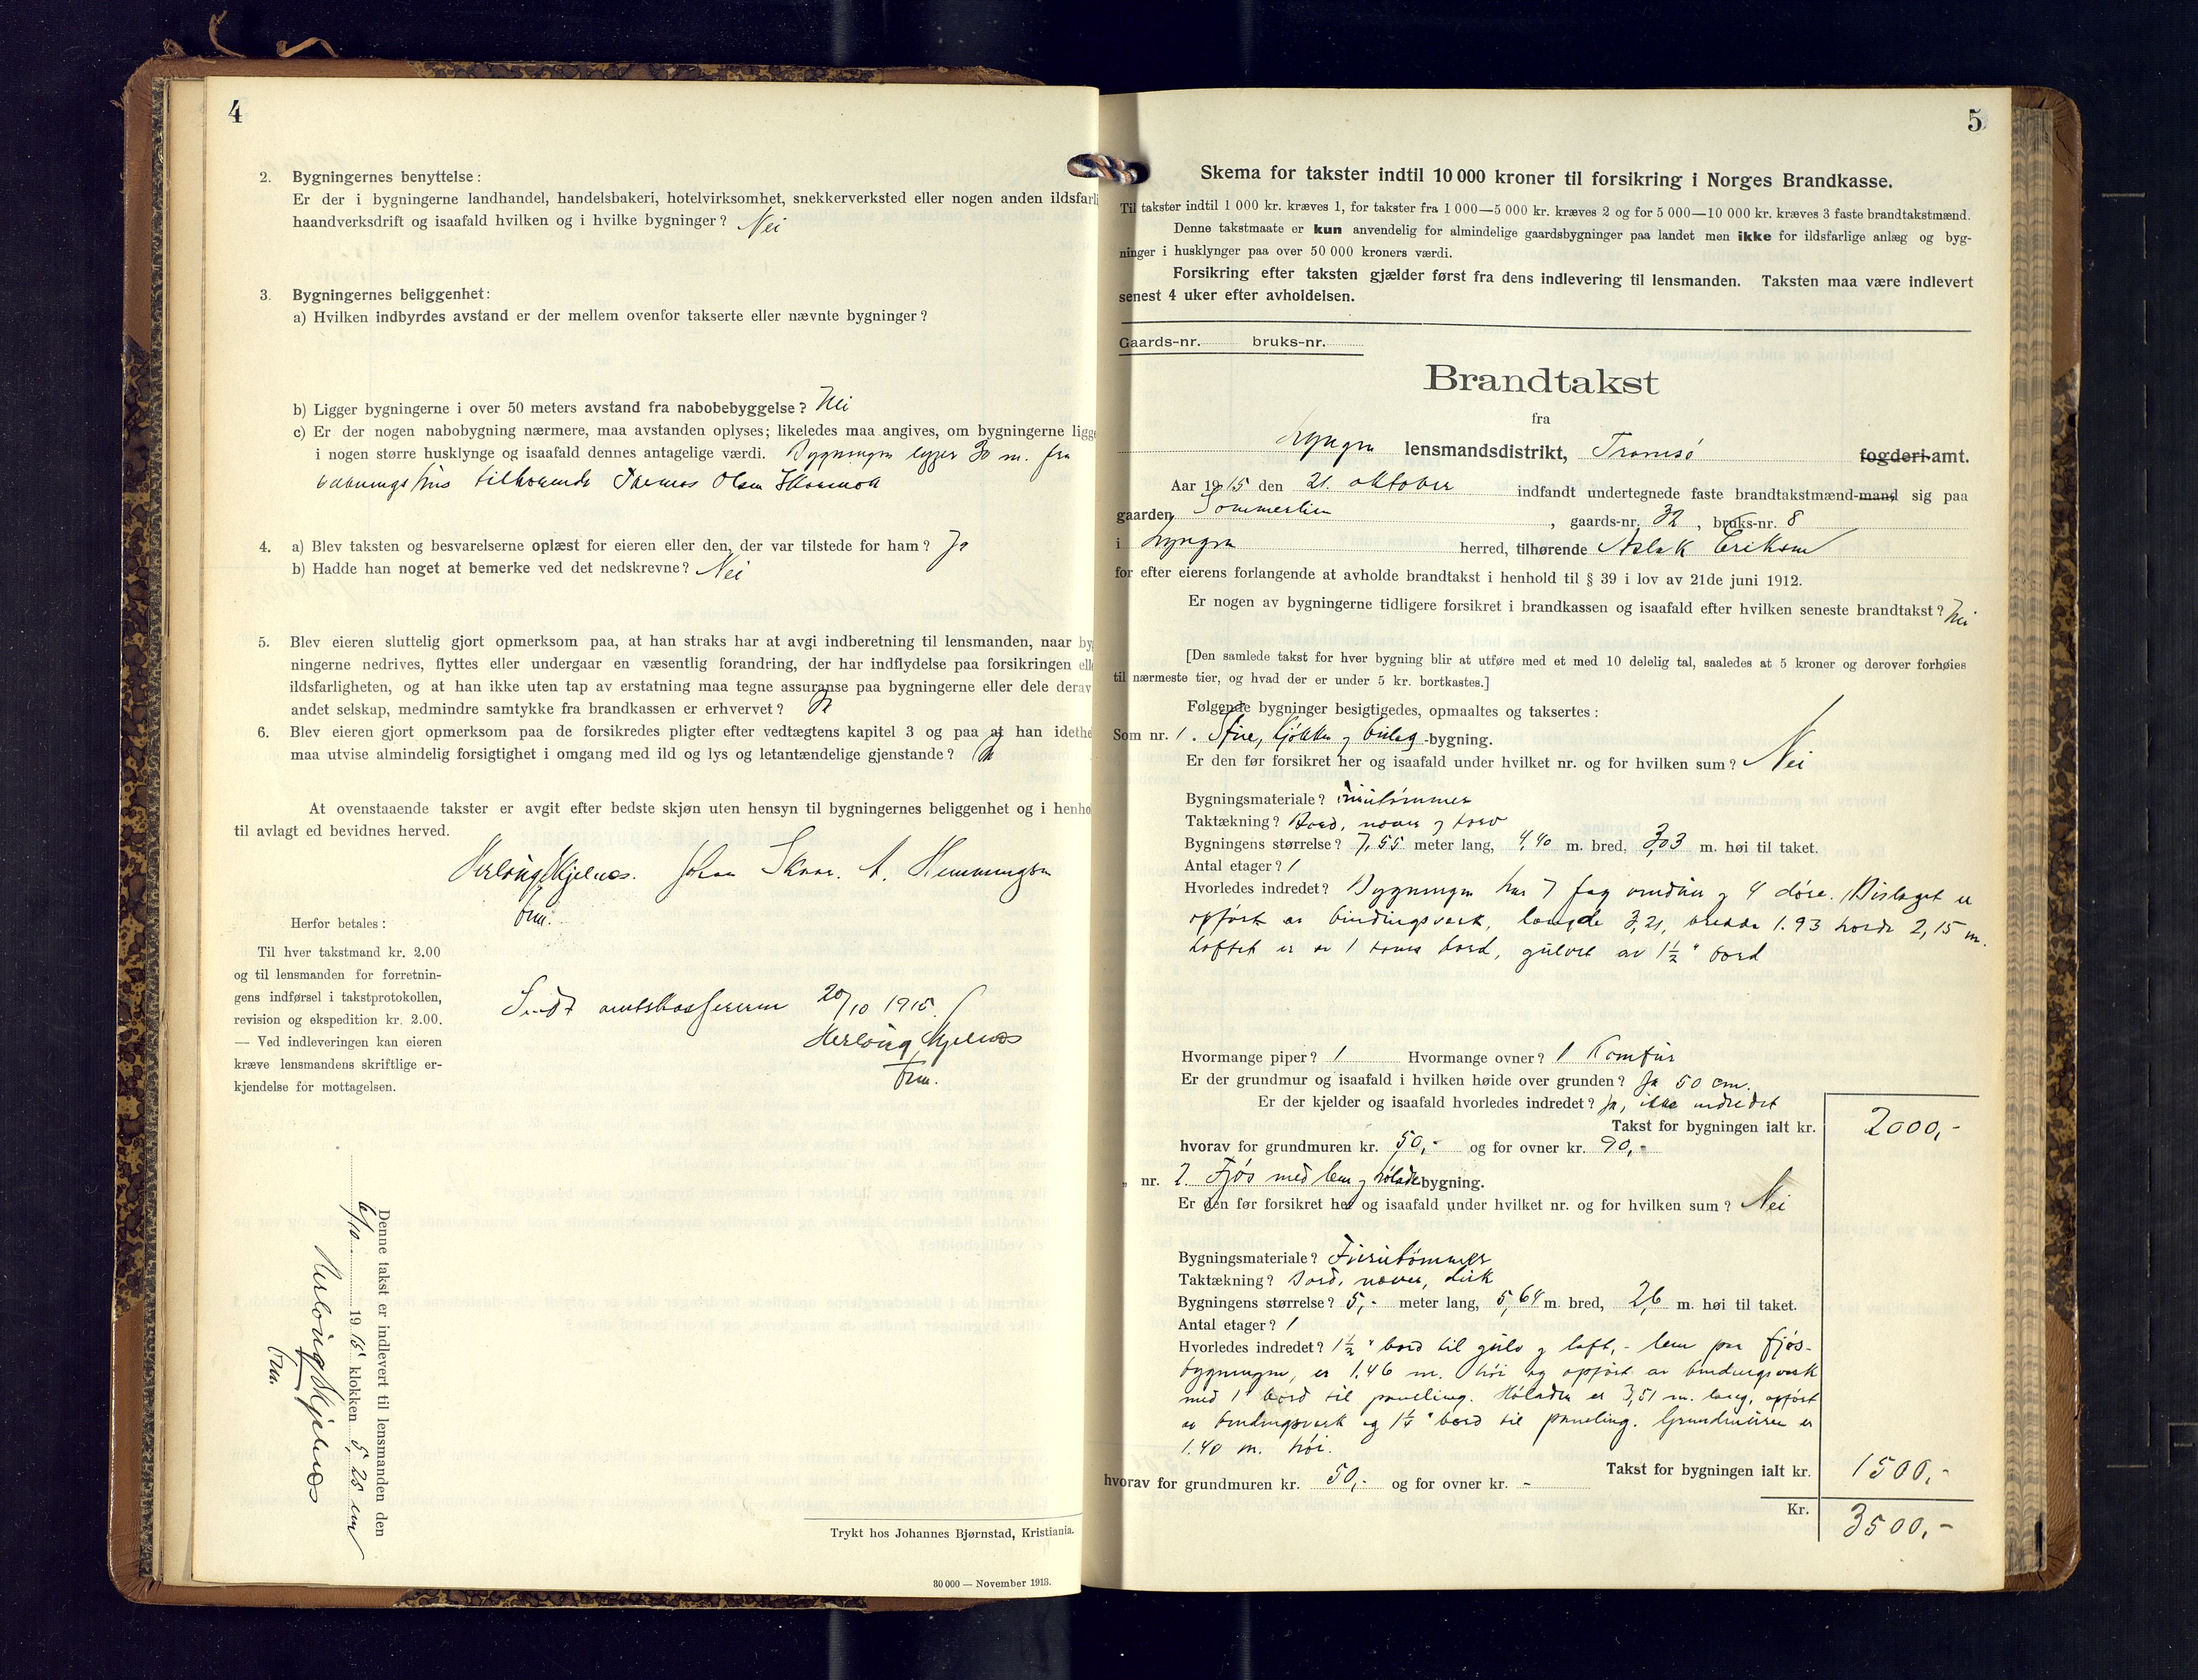 4
2. Bygningernes benyttelse:
Er der i bygningerne landhandel, handelsbakeri, hotelvirksomhet, snekkerverksted eller nogen anden ildsfarli
haandverksdrift og isaafald hvilken og i hvilke bygninger? Nei
3. Bygningernes beliggenhet:
a) Hvilken indbyrdes avstand er der mellem ovenfor takserte eller nævnte bygninger?
b) Ligger bygningerne i over 50 meters avstand fra nabobebyggelse? Nei
c) Er der nogen nabobygning nærmere, maa avstanden oplyses; likeledes maa angives, om bygningerne ligge
i nogen større husklynge og isaafald dennes antagelige værdi. Bygningen ligger 30 m. fra
vaaningshus tilhørende Thomas Olsen
4. a) Blev taksten og besvarelserne oplæst for eieren eller den, der var tilstede for ham? Ja
b) Hadde han noget at bemerke ved det nedskrevne? Nei
5. Blev eieren sluttelig gjort opmerksom paa, at han straks har at avgi indberetning til lensmanden, naar by
ningerne nedrives, flyttes eller undergaar en væsentlig forandring, der har indflydelse paa forsikringen elle
ildsfarligheten, og at han ikke uten tap av erstatning maa tegne assuranse paa bygningerne eller dele derav
andet selskap, medmindre samtykke fra brandkassen er erhvervet? Ja
6. Blev eieren gjort opmerksom paa de forsikredes pligter efter vedtægtens kapitel 3 og paa at han idethe
maa utvise almindelig forsigtighet i omgang med ild og lys og letantændelige gjenstande? Ja
At ovenstaaende takster er avgit efter bedste skjøn uten hensyn til bygningernes beliggenhet og i henho
til avlagt ed bevidnes herved.
Herlöug Kjelnes. Johan Skaar. A. Hemmingsen
fm.
Herfor betales:
Til hver takstmand kr. 2.00
og til lensmanden for forretnin-
gens indførsel i takstprotokollen,
revision og ekspedition kr. 2.00.
— Ved indleveringen kan eieren
kræve lensmandens skriftlige er-
kjendelse for mottagelsen.
Sendt amtskassereren 20/10 1915.
Herlöug Kjelnes
fm.
Denne takst er indlevert til lensmanden den
6/10 1915 klokken 5,25 em
Herlöug Kjelnes
fm.
Trykt hos Johannes Bjørnstad, Kristiania.
30 000 — November 1913.
5
Skema for takster indtil 10 000 kroner til forsikring i Norges Brandkasse.
Til takster indtil 1 000 kr. kræves 1, for takster fra 1 000—5 000 kr. kræves 2 og for 5 000—10 000 kr. kræves 3 faste brandtakstmænd.
Denne takstmaate er kun anvendelig for almindelige gaardsbygninger paa landet men ikke for ildsfarlige anlæg og byg-
ninger i husklynger paa over 50 000 kroners værdi.
Forsikring efter taksten gjælder først fra dens indlevering til lensmanden. Taksten maa være indlevert
senest 4 uker efter avholdelsen.
Gaards-nr. bruks-nr.
Brandtakst
fra
Lyngen lensmandsdistrikt, Tromsö fogderi-amt.
Aar 1915 den 21. oktober indfandt undertegnede faste brandtakstmænd-mand sig paa
gaarden Sommerlien, gaards-nr. 32, bruks-nr. 8
i Lyngen herred, tilhørende Aslak Eriksen
for efter eierens forlangende at avholde brandtakst i henhold til § 39 i lov av 21de juni 1912.
Er nogen av bygningerne tidligere forsikret i brandkassen og isaafald efter hvilken seneste brandtakst? Nei
[Den samlede takst for hver bygning blir at utføre med et med 10 delelig tal, saaledes at 5 kroner og derover forhøies
til nærmeste tier, og hvad der er under 5 kr. bortkastes.]
Følgende bygninger besigtigedes, opmaaltes og taksertes:
Som nr. 1. Stue, kjökken og bislag-bygning.
Er den før forsikret her og isaafald under hvilket nr. og for hvilken sum? Nei
Bygningsmateriale? Furutömmer
Taktækning? Bord, næver og torv
Bygningens størrelse? 7,55 meter lang, 4,40 m. bred, 3,03 m. høi til taket.
Antal etager? 1
Hvorledes indredet? Bygningen har 7 fag vinduer og 4 döre. Bislaget er
opfört av bindingsverk, længde 3,21, bredde 1.93 höide 2,15 m.
Loftet er av 1 toms bord, gulvet av 1½" bord
Hvormange piper? 1 Hvormange ovner? 1 Komfur
Er der grundmur og isaafald i hvilken høide over grunden? Ja 50 cm.
Er der kjelder og isaafald hvorledes indredet? Ja, ikke indredet
Takst for bygningen ialt kr. 2000,-
hvorav for grundmuren kr. 50,- og for ovner kr. 90,-
„ nr. 2. Fjös med lem og höladebygning.
Er den før forsikret her og isaafald under hvilket nr. og for hvilken sum? Nei
Bygningsmateriale? Furutömmer
Taktækning? Bord, næver,
Bygningens størrelse? 5,- meter lang, 5,64 m. bred, 2,6 m. høi til taket.
Antal etager? 1
Hvorledes indredet? 1½" bord til gulv og loft, - lem paa fjös-
bygningen, er 1,46 m. höi og opfört av bindingsverk
med 1" bord til paneling. Höladen er 3,51 m. lang, opfört
av bindingsverk og 1¼" bord til paneling. Grundmuren er
1.40 m. höi.
Takst for bygningen ialt kr. 1500,-
hvorav for grundmuren kr. 50,- og for ovner kr. -
Kr. 3500,-